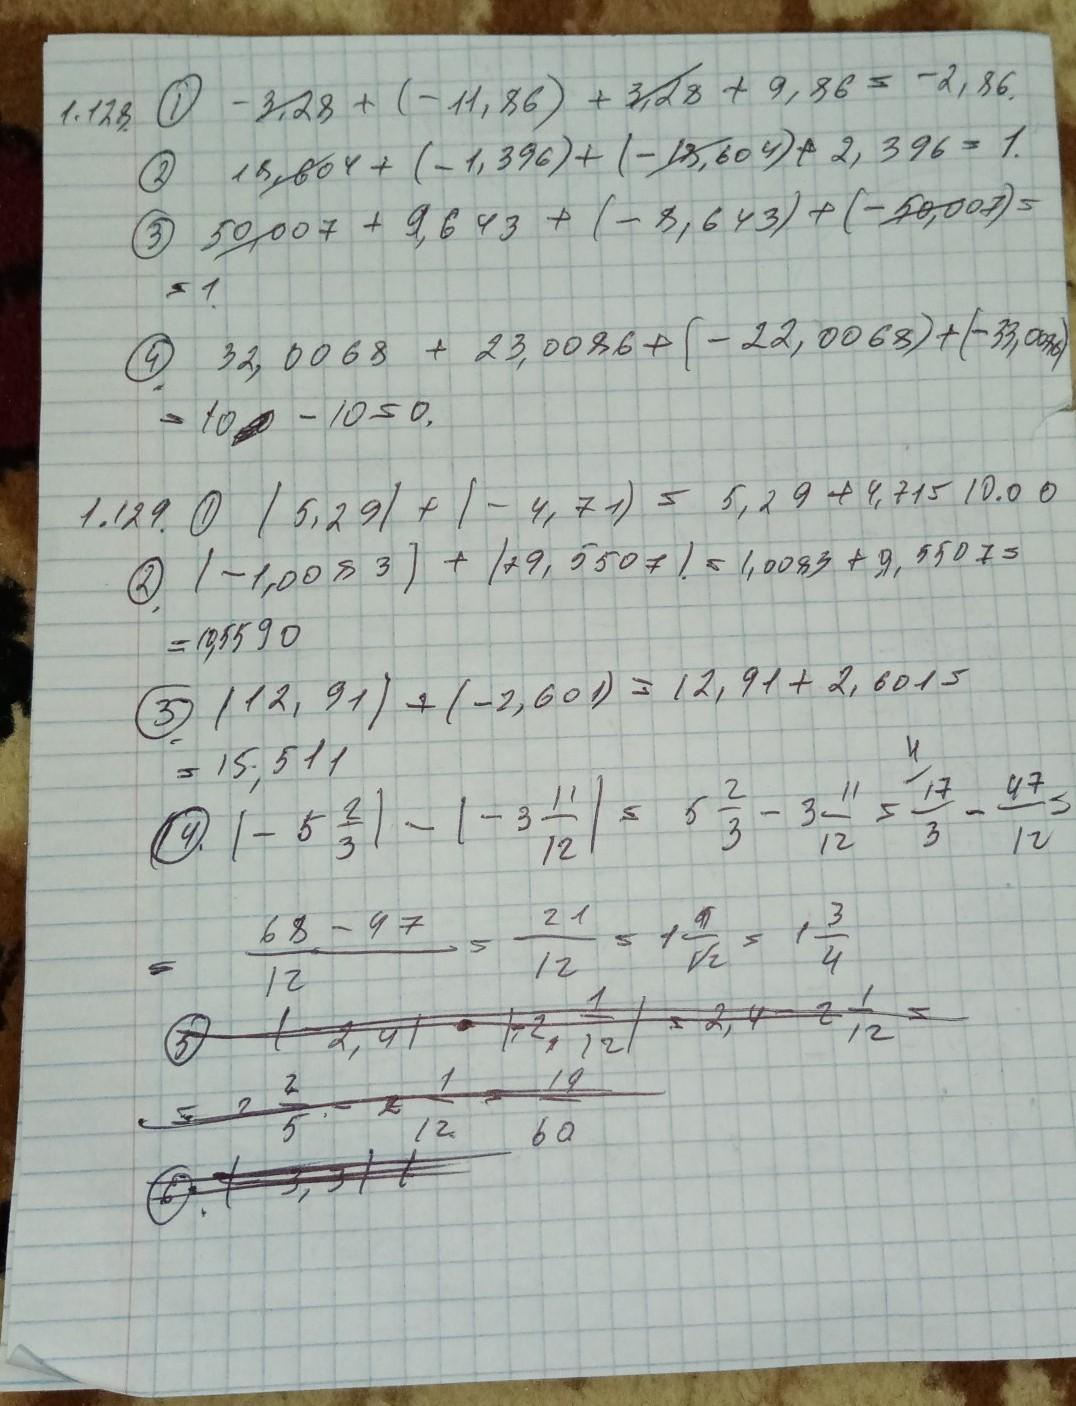 1.128. ① -3,28 + (-11,86) + 3,28 + 9,86 = -2,86.
② 18,604 + (-1,396) + (-18,604) + 2,396 = 1.
③ 50,007 + 9,643 + (-8,643) + (-50,007) =
= 1.
④ 32,0068 + 23,0086 + (-22,0068) + (-33,0086)
= 10 - 10 = 0.
1.129. ① |5,29| + |-4,71| = 5,29 + 4,71 = 10.00
② |-1,0083| + |+9,5507| = 1,0083 + 9,5507 =
= 10,5590
③ |12,91| + |-2,601| = 12,91 + 2,601 =
= 15,511
④ |-5 2/3| - |-3 11/12| = 5 2/3 - 3 11/12 = 17/3 - 47/12 =
= 68 - 47/12 = 21/12 = 1 9/12 = 1 3/4
⑤ |-2,4| |-2 1/12| = 2,4 - 2 1/12 =
= 2 2/5 - 2 1/12 = 19/60
⑥ |-3,3| |